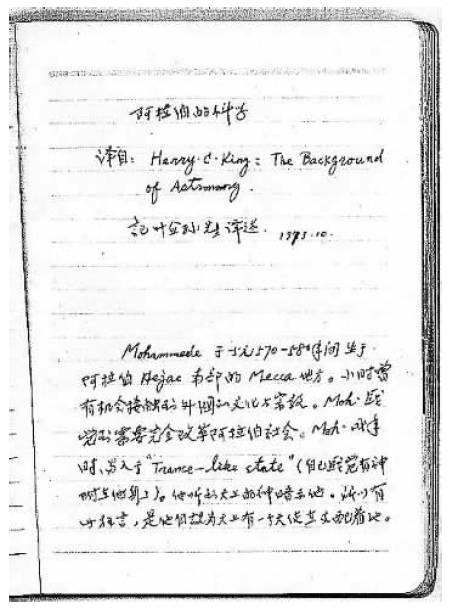 阿拉伯的科学
译自: Harry·C·King: The Background
of Astronomy.
記叶企孙先生译述. 1973.10.
Mohammede 于公元570-580年间生于
阿拉伯 Hejac 南部的 Mecca 地方。小时曾
有机会接触到外国的文化与宗教。Moh. 感
觉到需要完全改革阿拉伯社会。Moh. 成年
时,易入于"Trance-like state"(自己感觉有神
附在他身上)。他听到天上的神暗示他。所以有
时狂言,是他自认为天上有一个天使在支配着他。